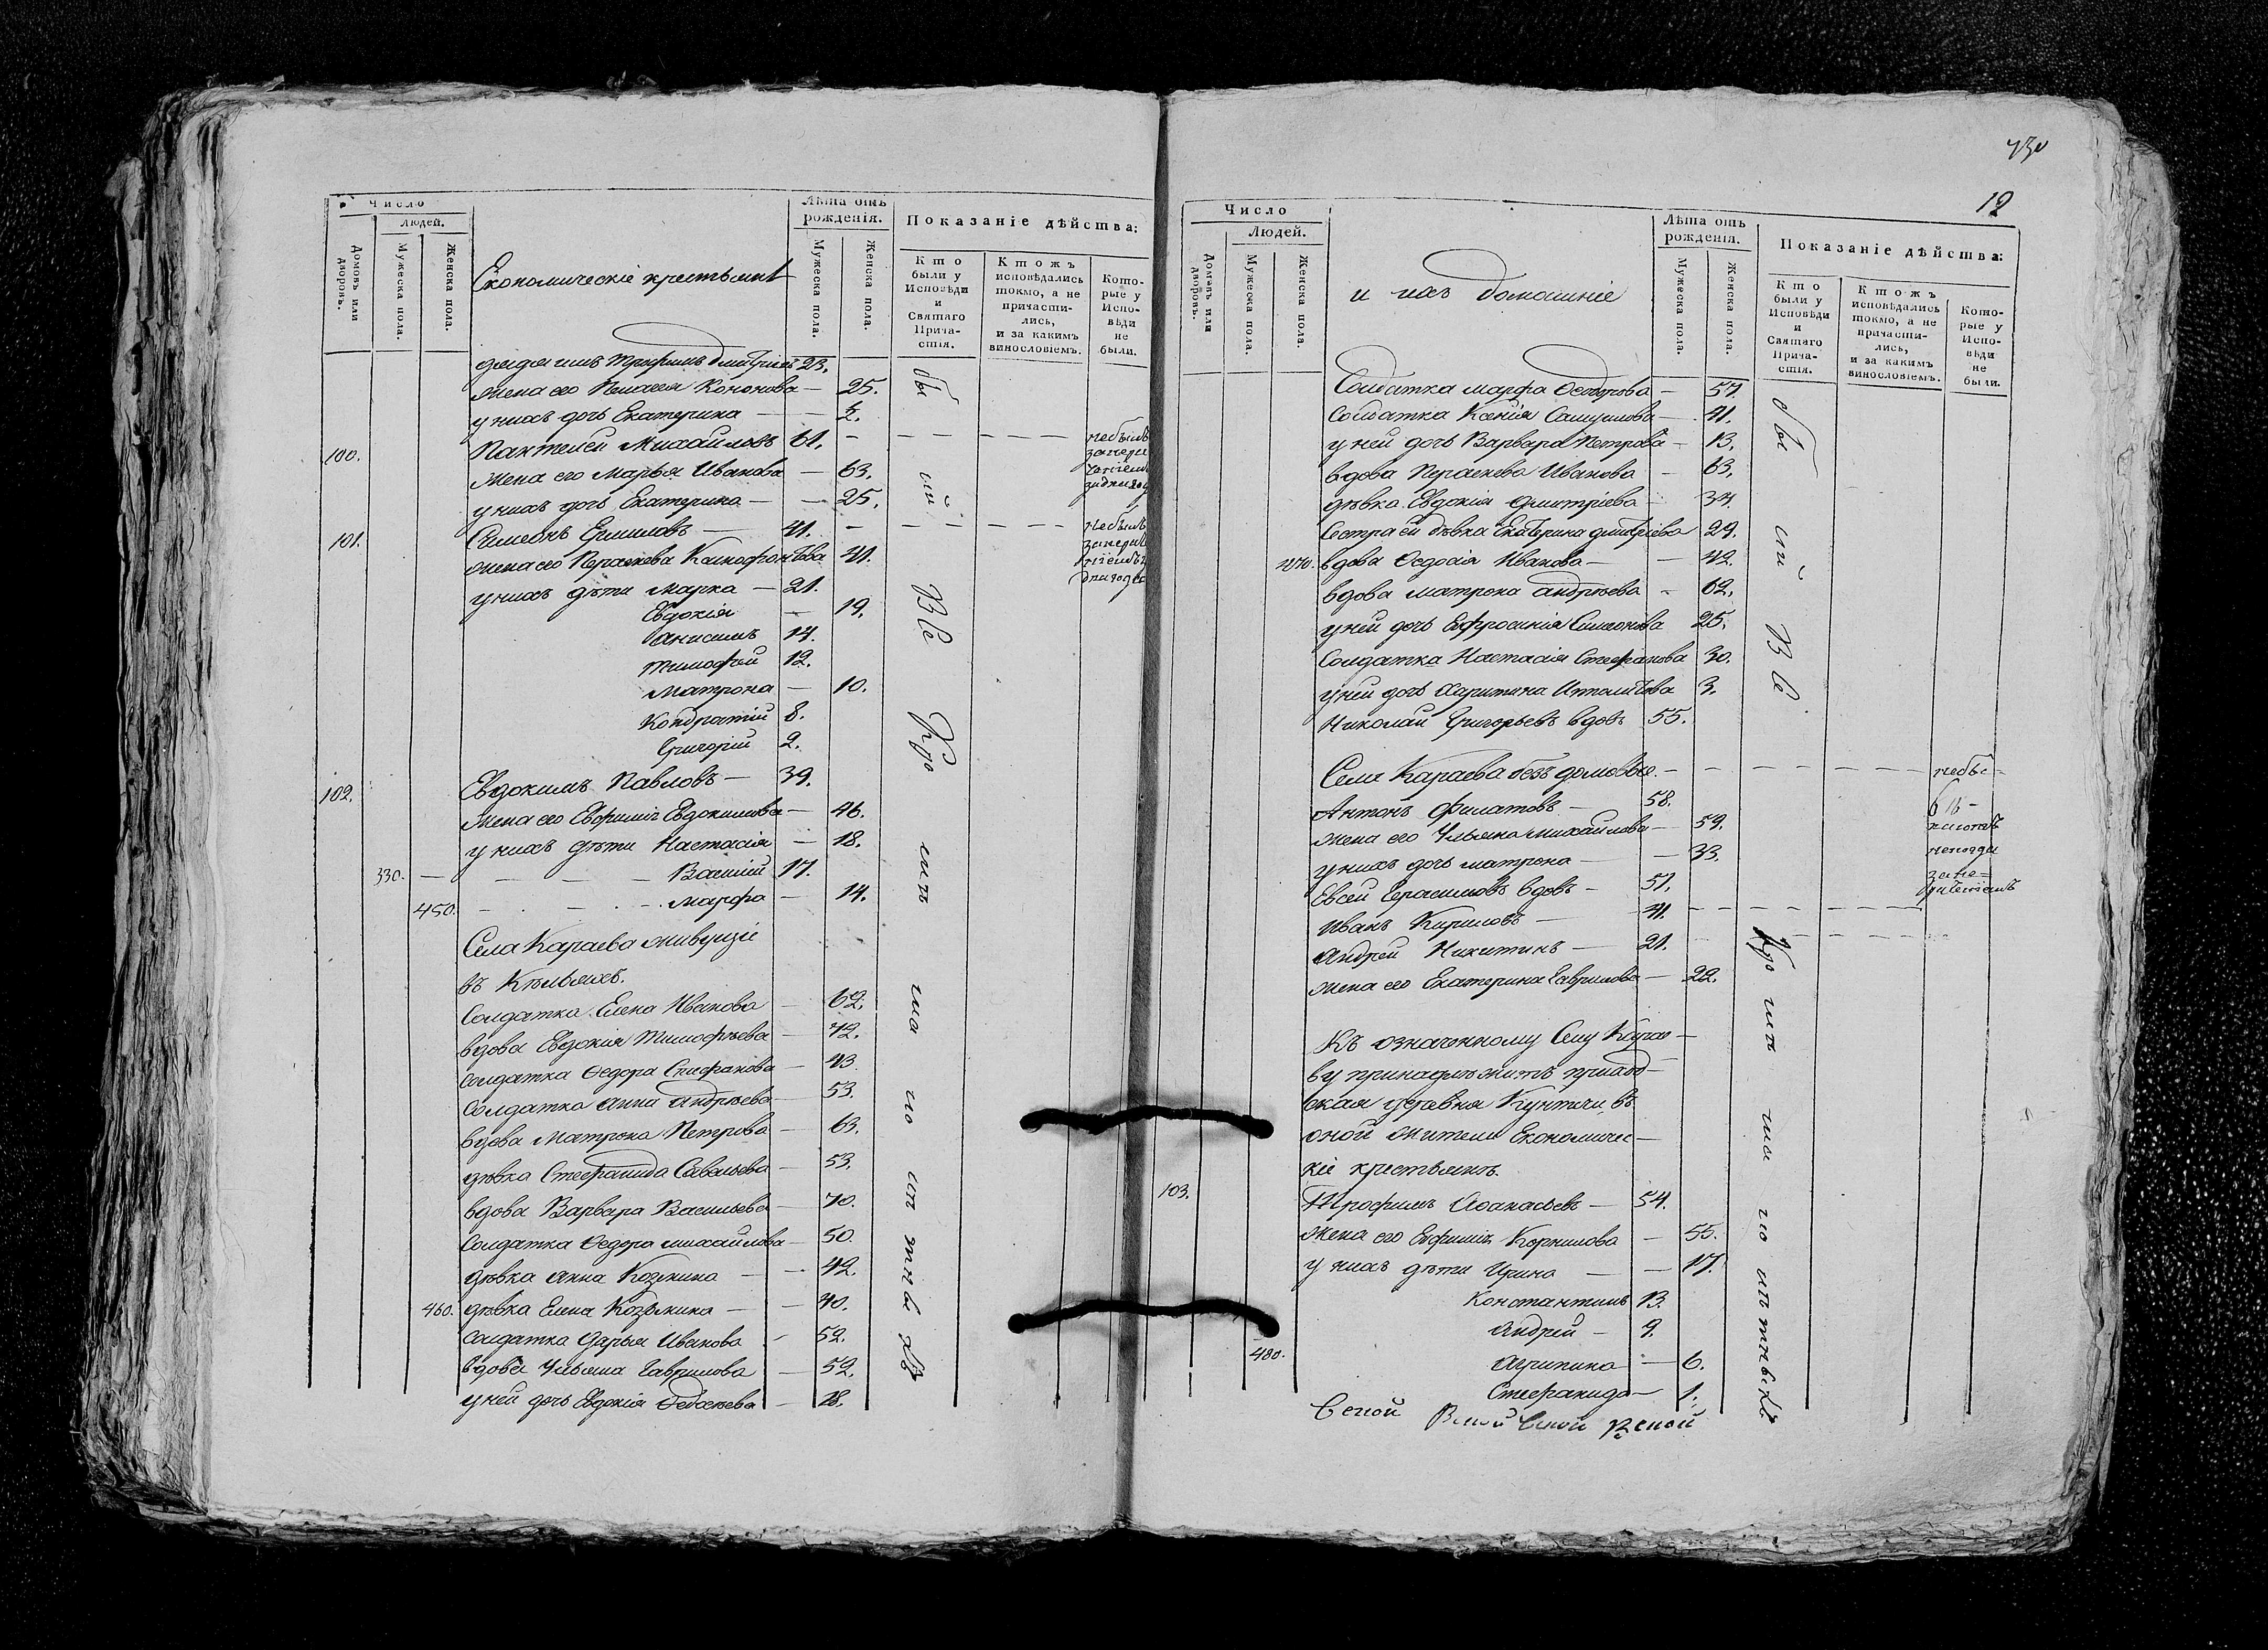 Число
Людей.
Домовъ или дворовъ.
Мужеска пола.
Женска пола.
Економическіе крестьянѣ
Лѣта отъ рожденія.
Мужеска пола.
Женска пола.
Показаніе дѣйства:
Кто были у Исповѣди и Святаго Причастія.
Ктожъ исповѣдались токмо, а не причастились, и за какимъ винословіемъ.
Которые у Исповѣди не были.
Трофимъ Дмитріевъ 23.
жена его Пелагея Кононова — 25.
у нихъ дочь Екатерина — 5.
100. Пантелей Михайловъ 61. небылъ
жена его Марья Иванова — 63.
у нихъ дочь Екатерина — 25.
101. Симеонъ Ермиловъ — 41. небылъ
жена его Параскева Ксенофонтова 41.
у нихъ дѣти Марка — 21.
Евдокія — 19.
Анисимъ 14.
Тимофей 12.
Матрона — 10.
Кондратій 8.
Григорій 2.
102. Евдокимъ Павловъ — 39.
жена его Евфимія Евдокимова — 46.
у нихъ дѣти Настасія — 18.
330. — Василій 17.
450. — Марфа — 14.
Села Караева живущіе
въ Кѣльяхъ.
Солдатка Елена Иванова — 62.
вдова Евдокія Тимофѣева — 72.
солдатка Ѳедора Стефанова — 43
Солдатка Анна Андрѣева — 53.
вдова Матрона Петрова — 63.
дѣвка Стефанида Савельева — 53.
вдова Варвара Васильева — 70.
Солдатка Ѳедора Михайлова — 50.
дѣвка Анна Козмина — 42.
460. дѣвка Елена Козмина — 40.
солдатка Дарья Иванова — 52.
вдова Ульяна Гаврилова — 52.
у ней дочь Евдокія — 28.
730
12
Число
Людей.
Домовъ или дворовъ.
Мужеска пола.
Женска пола.
и ихъ домашніе
Лѣта отъ рожденія.
Мужеска пола.
Женска пола.
Показаніе дѣйства:
Кто были у Исповѣди и Святаго Причастія.
Ктожъ исповѣдались токмо, а не причастились, и за какимъ винословіемъ.
Которые у Исповѣди не были.
Солдатка Марфа Ѳедорова — 57.
солдатка Ксенія Самуилова — 41.
у ней дочь Варвара Петрова — 13.
вдова Параскева Иванова — 63.
дѣвка Евдокія Дмитріева — 34.
Сестра ей дѣвка Екатерина Дмитріева 29.
470. вдова Ѳедосія Иванова — 42.
вдова Матрона Андрѣева — 62.
у ней дочь Евфросинія Симеонова 25.
Солдатка Настасія Стефанова 30.
у ней дочь Харитина Ипполитова 3.
Николай Григорьевъ вдовъ 55.
Села Караева бездомовые. — небы=
Антонъ Филатовъ — 58.
жена его Ульяна Михайлова — 59.
у нихъ дочь Матрона — 33.
Евсей Герасимовъ вдовъ — 51.
Иванъ Кириловъ — 41.
Андрей Никитинъ — 21.
жена его Екатерина Гаврилова — 22.
Къ означенному Селу Карае—
ву принадлѣжитъ приход—
ская деревня Кунтичи, въ
оной жители Економичес—
кіе крестьянѣ.
103. Трофимъ Аѳанасьевъ — 54.
жена его Евфимія Корнилова — 55.
у нихъ дѣти Ирина — 17.
Константинъ 13.
Андрей — 9.
480. Агрипина — 6.
Стефанида — 1.